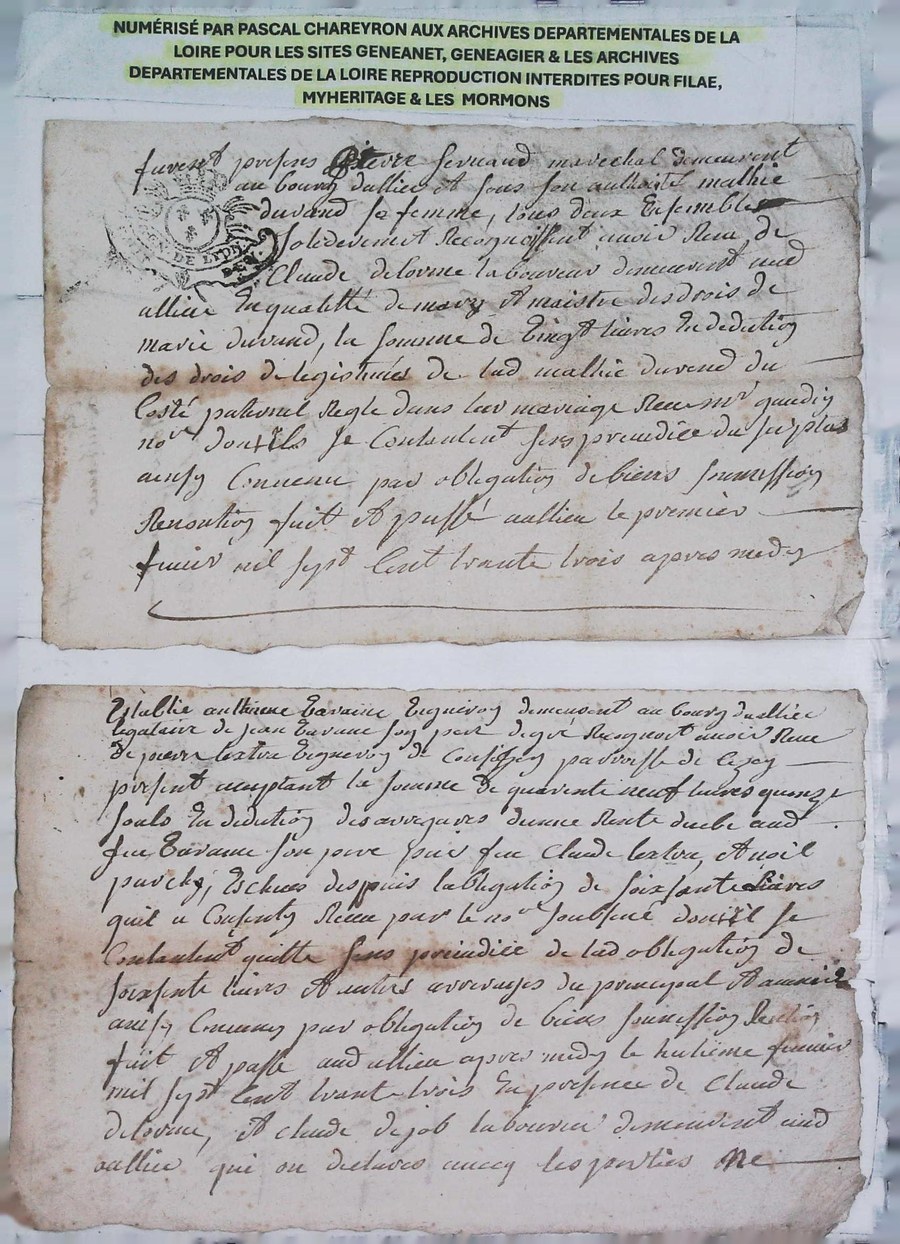 NUMÉRISÉ PAR PASCAL CHAREYRON AUX ARCHIVES DEPARTEMENTALES DE LA
LOIRE POUR LES SITES GENEANET, GENEAGIER & LES ARCHIVES
DEPARTEMENTALES DE LA LOIRE REPRODUCTION INTERDITES POUR FILAE,
MYHERITAGE & LES MORMONS
furent presens pierre fernand marechal demeurent
au bourg dallieu et sous son authorité mathie
durand sa femme, tous deux Ensembles
DE LYON
solidevement Recognoissent avoir Receu de
Claude delorme laboureur demeurent aud
allieu En qualitté de mary et maistre des drois de
marie durand, la somme de vingt livres En dedution
des drois de legistimes de lad mathie durend du
Costé paternel Regle dans leur mariage Receu mr gaudin
nore dont ils se Contentent sens preiudice du surplus
ainsy Convenu par obligation de biens soumission
Renontion fait et passé aallieu le premier
feurier mil sept Cent trante trois apres medy
Establie anthoine Tavaine demeurent au bourg dallieu
legataire de jean son pere de gré Recognoit avoir Receu
de pierre de parroisse de
present comptant la somme de quarente neuf livres quinze
souls En dedution des arrerages dunne Rente deube aud
feu son pere par feu Claude
Escheus despuis lobligation de soixsante livres
quil a Consenty Receu par le nore soubsné dont il se
Contentent quitte sens preiudice de lad obligation de
soixsente livres et autres arrerages du principal
ainsy Convenu par obligation de biens soumission
fait et passé aud allieu apres medy le huitieme feurier
mil sept Cent trante trois En presence de Claude
delorme, et claude dejob laboureur demeurent aud
aallieu qui on declares avecq les parties ne